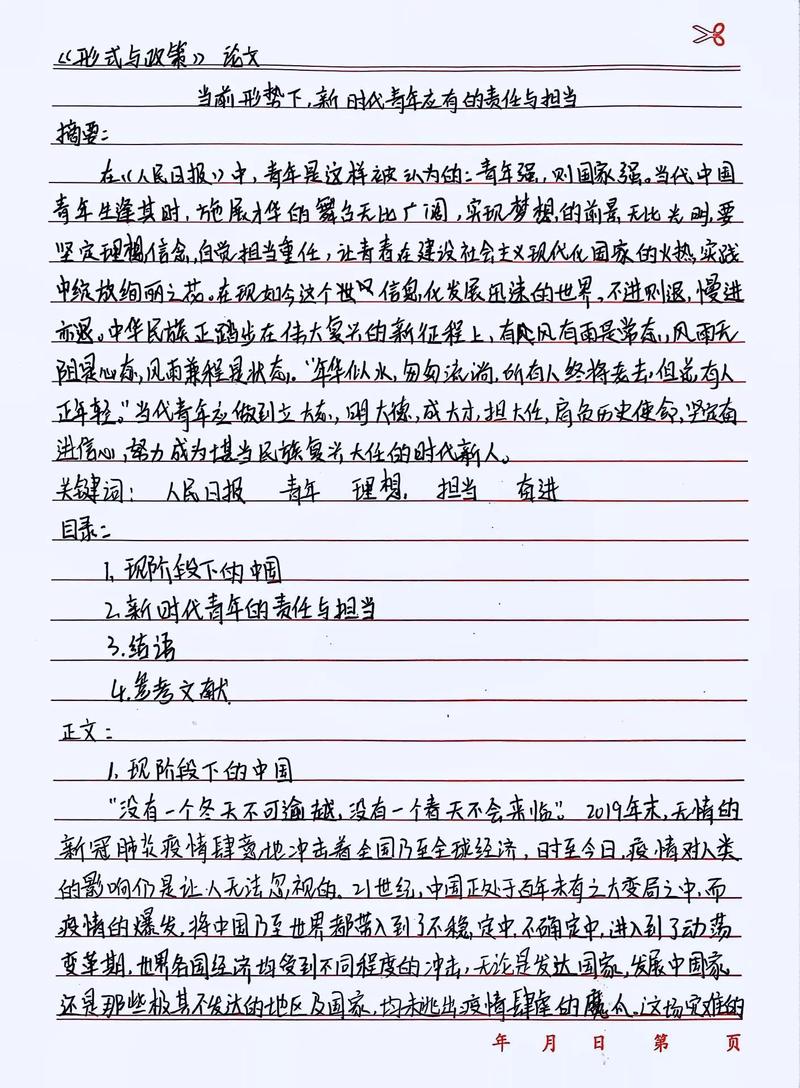 《形式与政策》 论文
当前形势下,新时代青年应有的责任与担当
摘要:
在《人民日报》中,青年是这样被认为的:青年强,则国家强。当代中国
青年生逢其时,施展才华的舞台无比广阔,实现梦想的前景无比光明,要
坚定理想信念,自觉担当重任,让青春在建设社会主义现代化国家的火热实践
中绽放绚丽之花。在现如今这个世以信息化发展迅速的世界。不进则退,慢进
亦退。中华民族正踏步在伟大复兴的新征程上,有风有雨是常态,风雨无
阻是心态,风雨兼程是状态。"年华似水,匆匆流淌,所有人终将老去,但总有人
正年轻。"当代青年应做到立大志,明大德,成大才,担大任,肩负历史使命,坚定奋
进信心,努力成为堪当民族复兴大任的时代新人。
关键词: 人民日报 青年 理想 担当 奋进
目录:
1.现阶段下的中国
2.新时代青年的责任与担当
3.结语
4.参考文献
正文:
1.现阶段下的中国
"没有一个冬天不可逾越,没有一个春天不会来临"。2019年末,无情的
新冠肺炎疫情肆意地冲击着全国乃至全球经济,时至今日,疫情对人类
的影响仍是让人无法忽视的。21世纪,中国正处于百年未有之大变局之中,而
疫情的爆发,将中国乃至世界都带入到了不稳定中,不确定中,进入到了动荡
变革期,世界各国经济均受到不同程度的冲击,无论是发达国家,发展中国家
还是那些极其不发达的地区及国家,均未逃出疫情肆虐的魔爪。这场灾难的
年 月 日 第 页